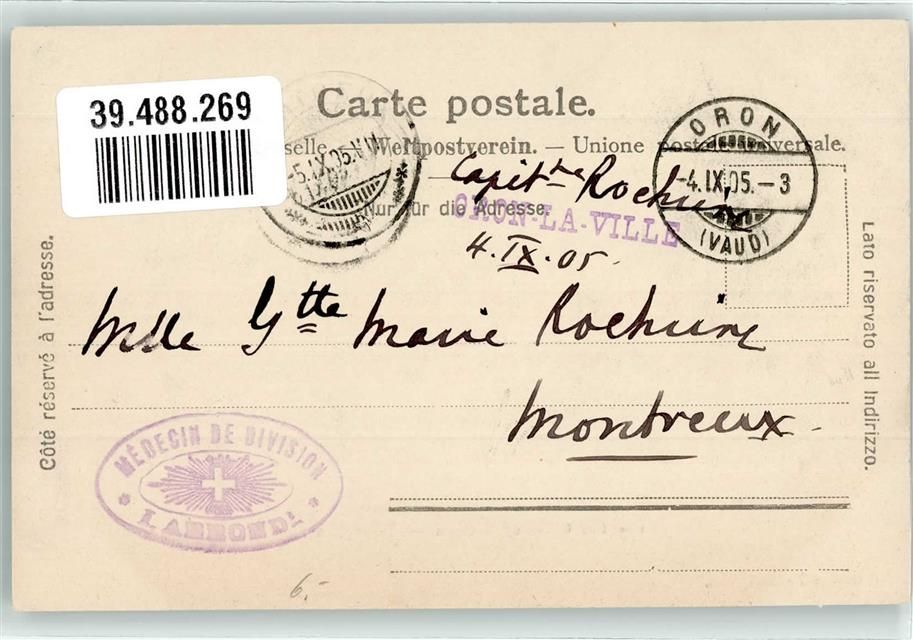 39.488.269
Carte postale.
Weltpostverein. — Unione postale universale.
Nur für die Adresse.
ORON
-4.IX.05.-3
(VAUD)
-5.IX.05.
Capit-ne
ORON-LA-VILLE
4.IX.05.
Melle Marie
Montreux.
Côté réservé à l'adresse.
Lato riservato all Indirizzo.
MÉDECIN DE DIVISION
I. ARROND.t
6.-